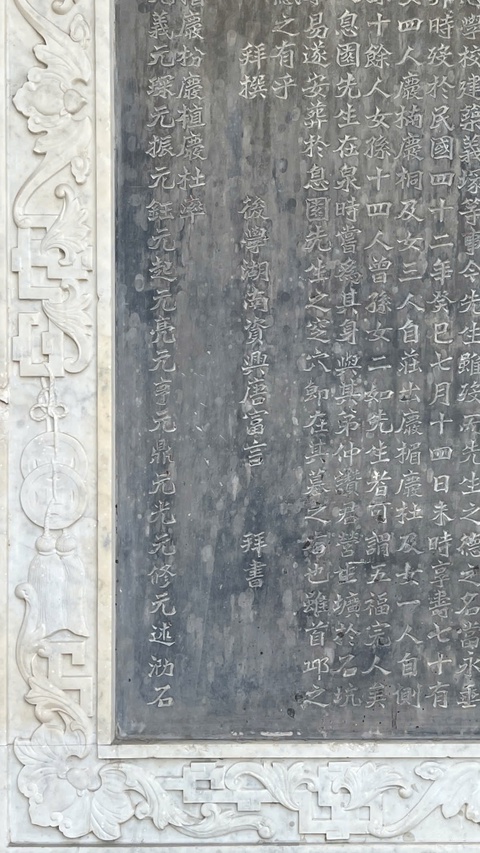 學校建築義塚等事今先生雖歿而先生之德之名當永垂
時歿於民國四十二年癸巳七月十四日未時享壽七十有
四人慶楠慶桐及女三人自莊出慶楣慶杜及女一人自側
十餘人女孫十四人曾孫女二如先生者可謂五福完人矣
息園先生在泉時嘗為其身與其弟仲讚君營生壙於石坑
易遂安葬於息園先生之窆穴即在其墓之右也雖首邱之
之有乎
拜撰
後學湖南資興唐富言 拜書
慶枌慶植慶杜率
義元琛元振元鈺元起元亮元亨元鼎元光元修元述泐石